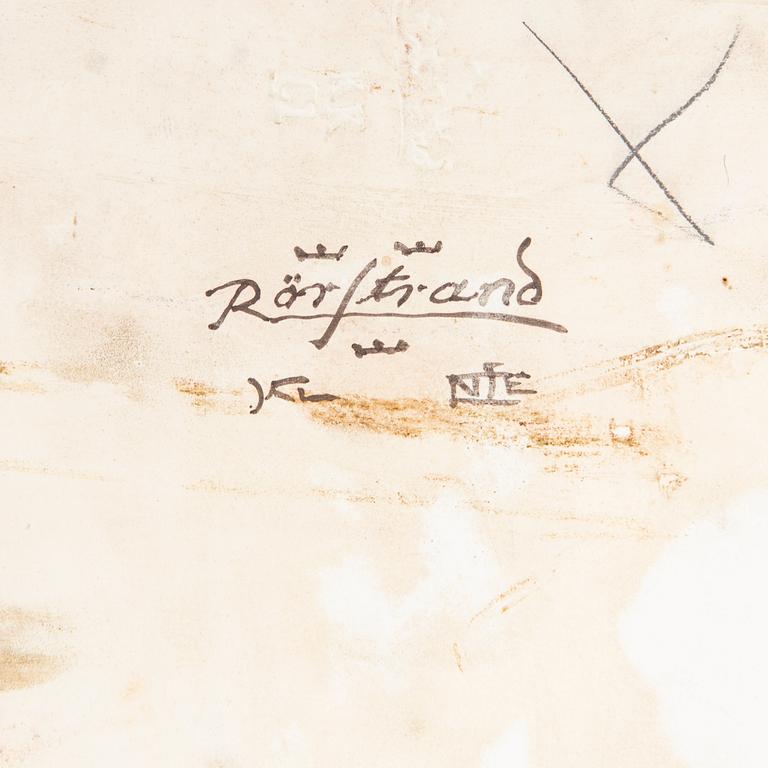 Rörstrand
KL NIE